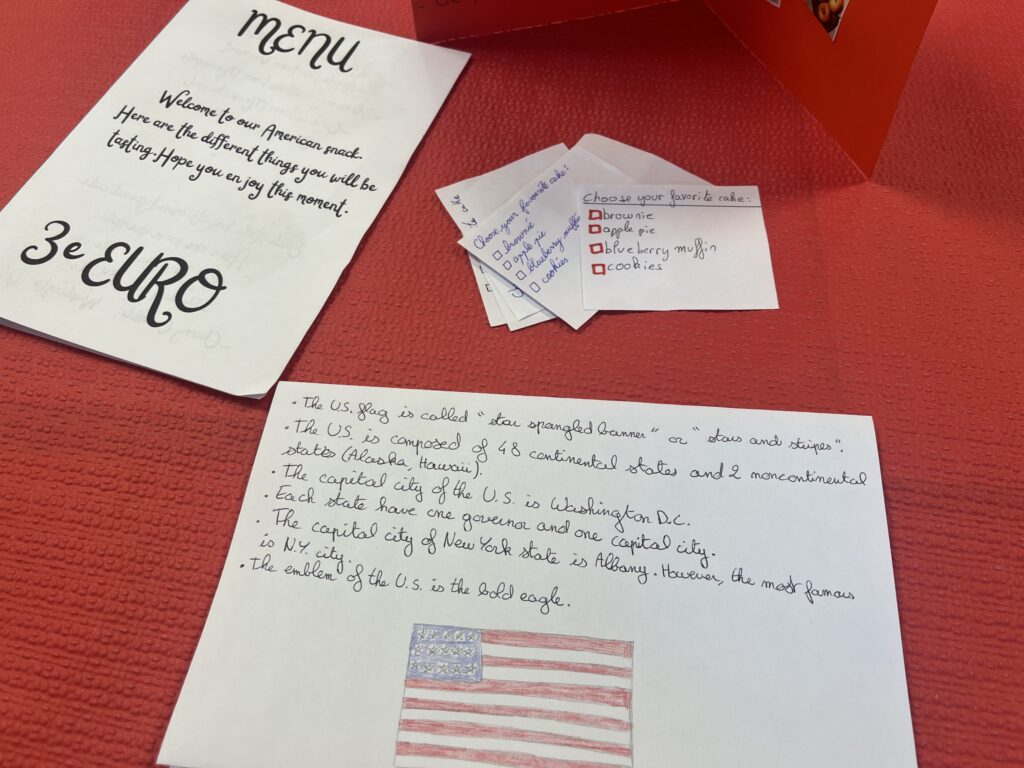 MENU
Welcome to our American snack.
Here are the different things you will be
tasting. Hope you enjoy this moment.
3e EURO
Choose your favorite cake:
brownie
apple pie
blueberry muffin
cookies
Choose your favorite cake:
brownie
apple pie
blueberry muffin
cookies
• The U.S. flag is called "star spangled banner" or "stars and stripes".
• The U.S. is composed of 48 continental states and 2 noncontinental
states (Alaska, Hawaii).
• The capital city of the U.S. is Washington D.C.
• Each state have one governor and one capital city.
• The capital city of New York state is Albany. However, the most famous
is N.Y. city.
• The emblem of the U.S. is the bold eagle.